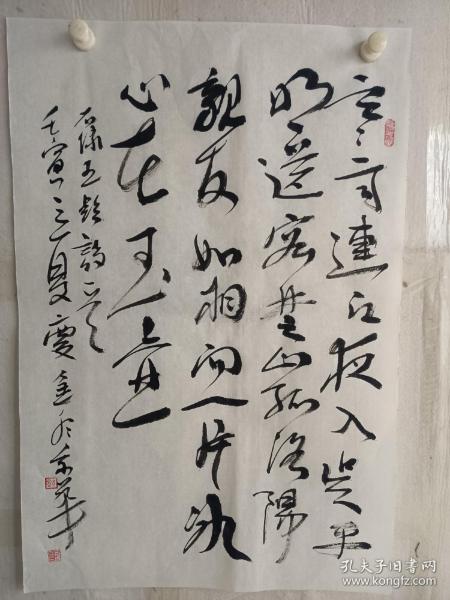 寒雨連江夜入吳平
明送客楚山孤洛陽
親友如相問一片冰
心在玉壺
壬寅之夏慶金於京華
孔夫子旧书网
www.kongfz.com